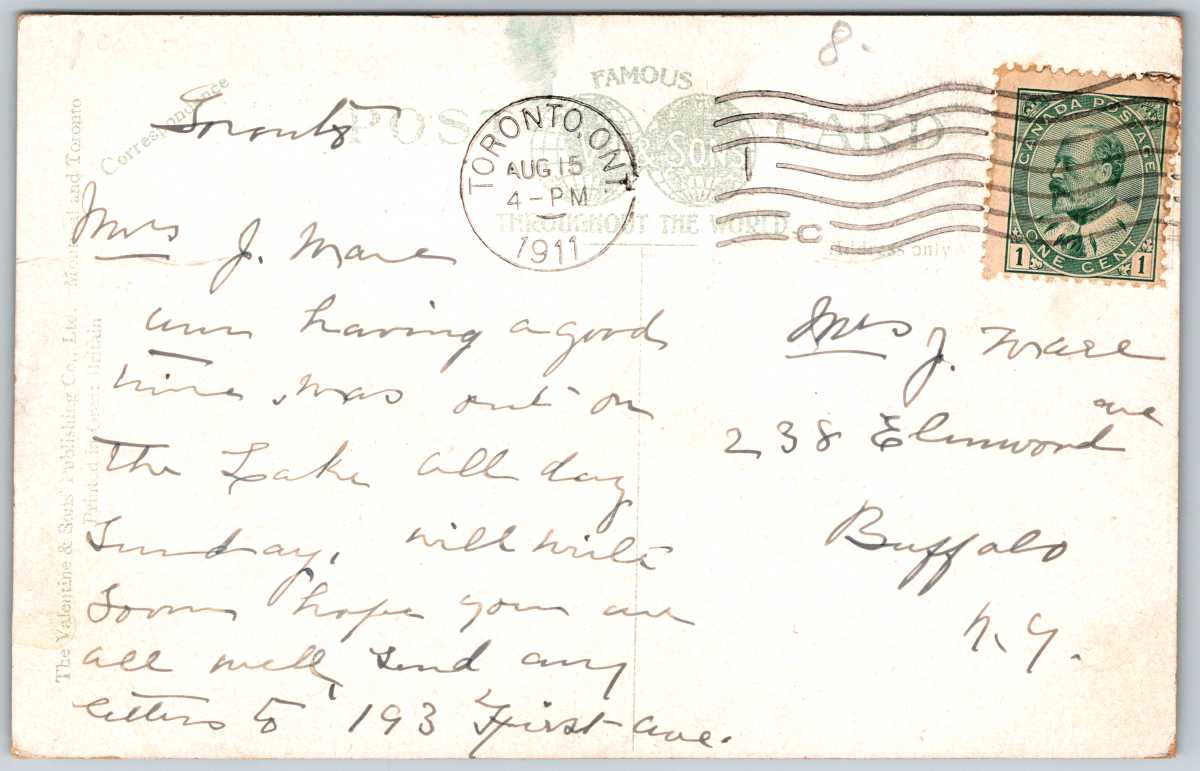 8.
FAMOUS
POST CARD
& SONS
THROUGHOUT THE WORLD
Correspondence
Address only
TORONTO, ONT.
AUG 15
4 - PM
1911
1
C
CANADA POSTAGE
ONE CENT
1 1
Toronto
Mrs J. Ware
am having a good
time, was out on
the Lake all day
Sunday, will write
soon hope you are
all well, send any
letters to 193 First ave.
Mrs J. Ware
238 Elmwood ave
Buffalo
N.Y.
The Valentine & Sons' Publishing Co., Ltd. Montreal and Toronto
Printed in Great Britain